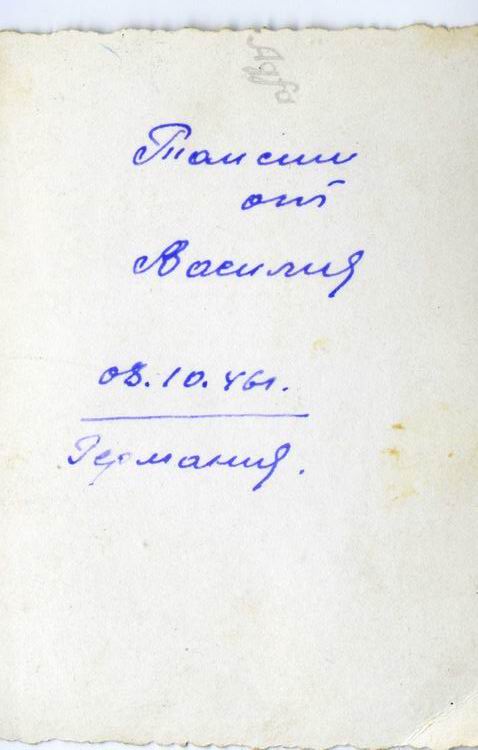 Agfa
Таисии
от
Василия
08.10.46г.
Германия.